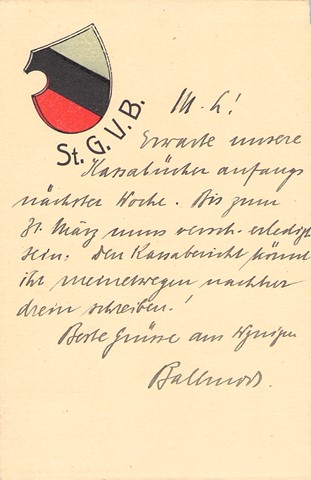 St. G. V. B.
M. L!
Erwarte unsere
Kassabücher anfangs
nächster Woche. Bis zum
31. März muss versch. erledigt
sein. Den Kassabericht könnt
ihr meinetwegen nachher
drein schreiben!
Beste Grüsse aus Wynigen
Ballmoos.